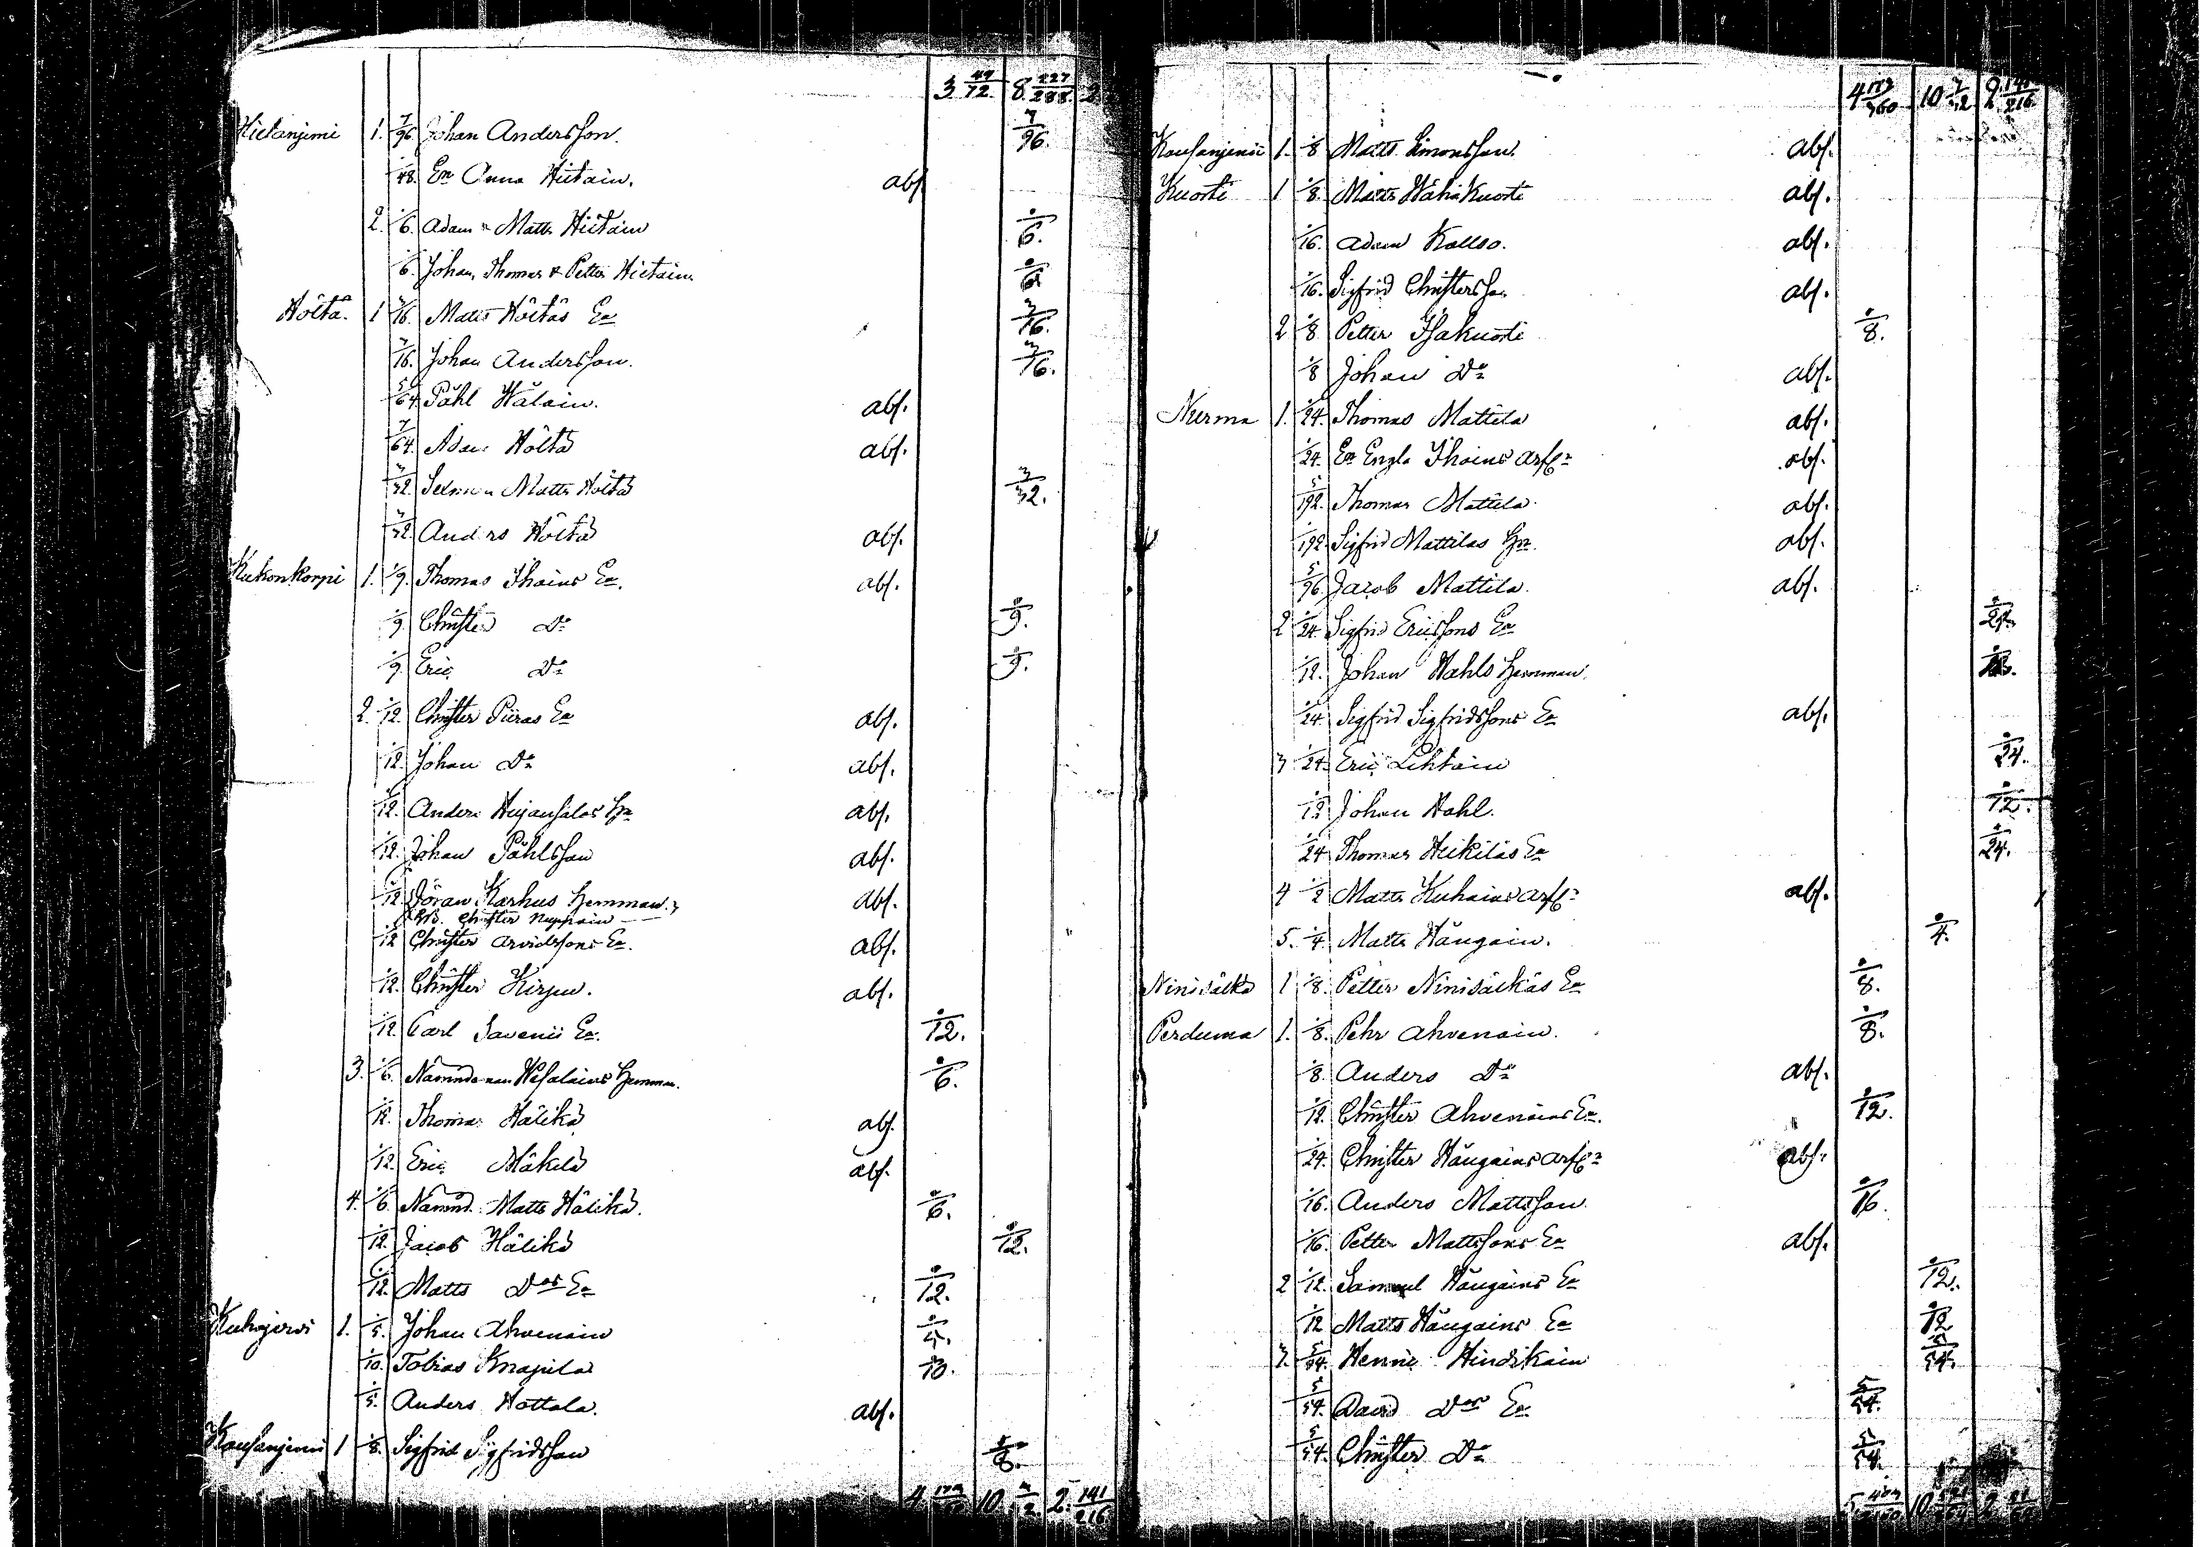 3 49/72. 8. 227/288. 2
Hietaniemi 1. 7/96 Johan Andersson. 7/96.
1/48. En Anna Hietain. abs.
2. 1/6. Adam & Matts Hietain 1/6.
1/6. Johan, Thomas & Petter Hietain 1/6.
Höltä. 1 3/16. Matts Höltäs En 3/16.
3/16. Johan Andersson. 3/16.
5/64. Påhl Hälain. abs.
7/64. Adam Höltä abs.
3/32. Matts Höltä 3/32.
3/32. Anders Höltä abs.
Kukonkorpi 1. 1/9. Thomas Ihains En. abs.
1/9. Christer Do 1/9.
1/9. Eric Do 1/9.
2. 1/12. Christer Piiras En abs.
1/12. Johan Do abs.
1/12. Anders abs.
1/12. Johan Påhlsson abs.
1/12 Jöran Karhus Hemman. abs.
Christer Nuppoin
1/12 Christer Arvidssons En. abs.
1/12. Christer Kirjav. abs.
1/12. Carl Savenii En. 1/12.
3. 1/6. Nämndeman Hemman. 1/6.
1/12. Thomas Hälikä abs.
1/12. Eric Mäkelä abs.
4. 1/6. Nämnd. Matts Hälikä. 1/6.
1/12. Jacob Hälikä 1/12.
1/12. Matts Dos En 1/12.
Kuhajervi 1. 1/5. Johan Ahvenain 1/5.
1/10. Tobias Knapila 1/10.
1/5. Anders Hottola. abs.
Kousaniemi 1 1/8. Sigfrid Sigfridsson 1/8.
4. 10. 2. 141/216
4 173/360 10 7/12 2 141/216
Kousaniemi 1. 1/8 Matts Simonsson. abs.
Kuorti 1 1/8. Matts Wähäkuorti abs.
1/16. Adam Kallso. abs.
1/16. Sigfrid Christersson abs.
2 1/8 Petter Isokuorti 1/8.
1/8 Johan Do abs.
Nurma 1. 1/24. Thomas Mattila abs.
1/24. En Engla Ihains arfvr abs.
5/192. Thomas Mattila. abs.
1/192. Sigfrid Mattilas Hn. abs.
5/96 Jacob Mattila. abs.
2 1/24. Sigfrid Ericssons En 1/24.
1/12. Johan Hahls Hemman. 1/12.
1/24. Sigfrid Sigfridssons En abs.
3 1/24. Eric Lehtain 1/24.
1/12 Johan Hahl. 1/12.
1/24 Thomas Heikiläs En 1/24.
4 1/2 Matts Kuhains arfvr abs.
5. 1/4. Matts Häugain. 1/4.
Ninisäkä 1 1/8. Petter Ninisäkäs En 1/8.
Perduma 1. 1/8. Pehr Ahvenain. 1/8.
1/8. Anders Do abs.
1/12. Christer Ahvenains En. 1/12.
1/24. Christer Häugains arfvr abs.
1/16. Anders Mattsson 1/16.
1/16. Petter Mattssons En abs.
2 1/12. Samuel Häugains En 1/12.
1/12 Matts Häugains En 1/12
3. 5/54. Henric Hindikain 5/54.
5/54. David Dos En 5/54.
5/54. Christer Do 5/54.